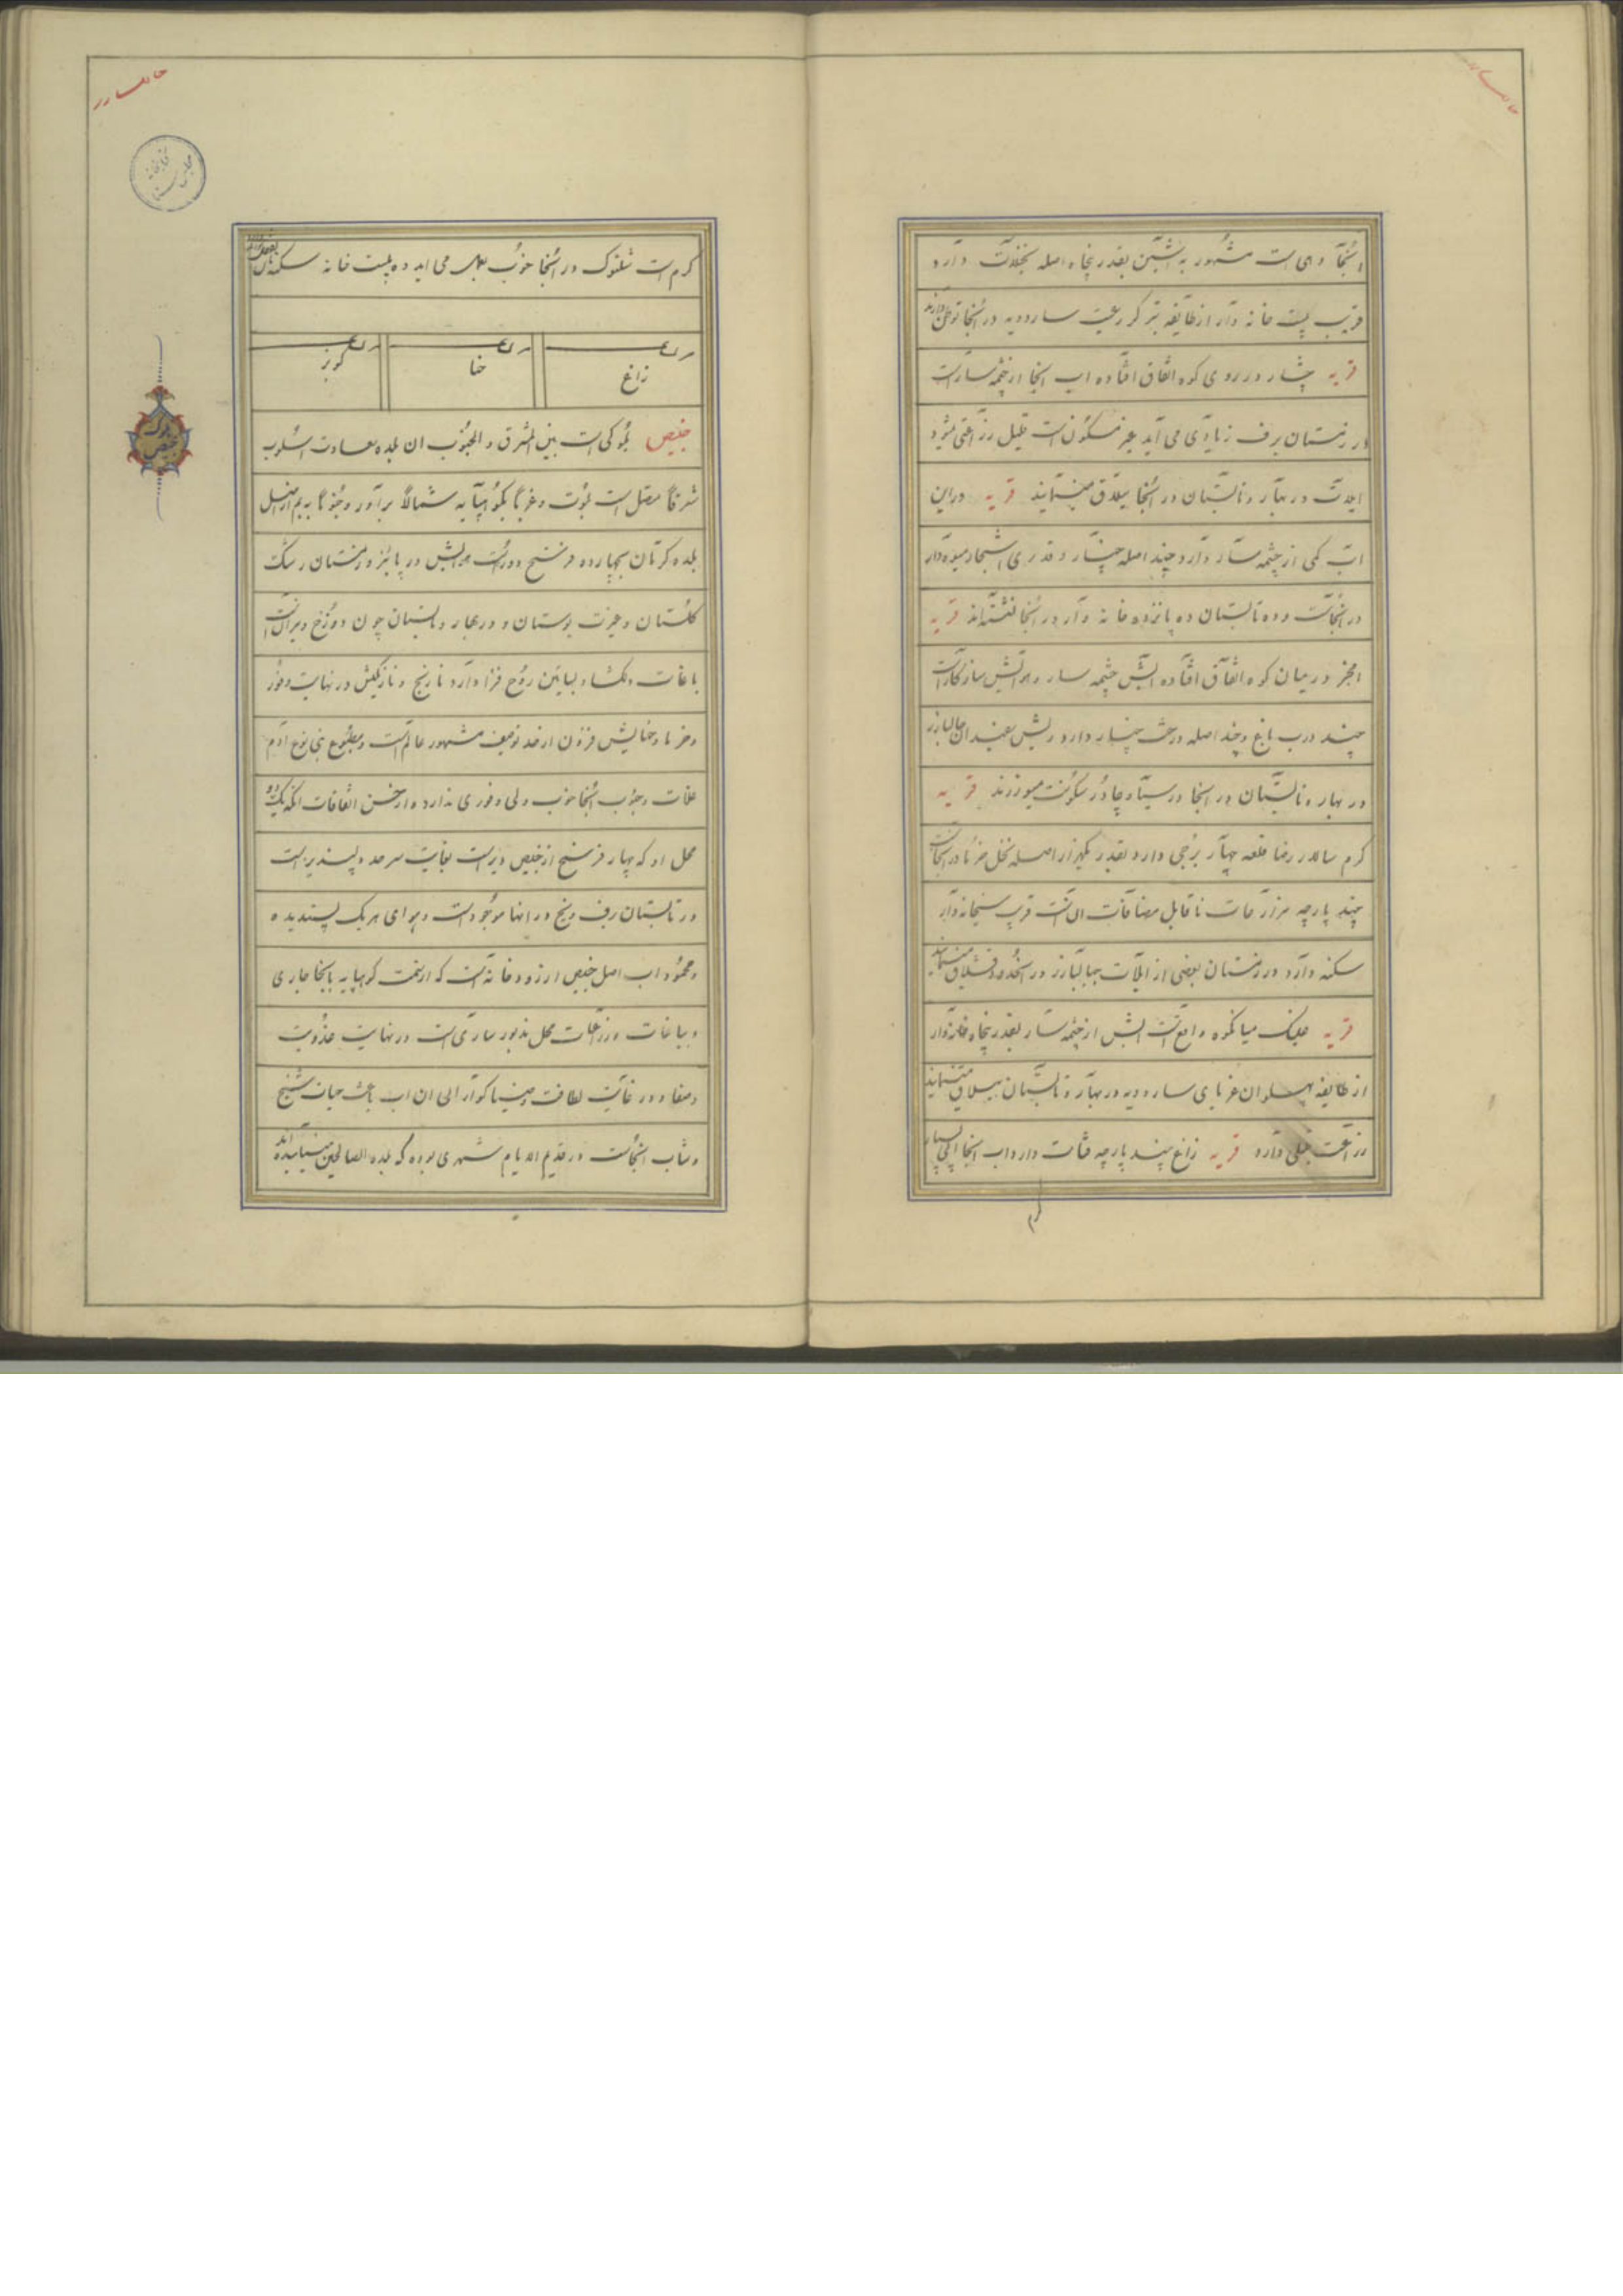 انجا دهی است مشهور به نشتین بقدر پنجاه اصله نخیلات دارد
قریب بیست خانه دار از طایفه رعیت ساردویه در انجا توطن دارند
قریه چنار در روی کوه اتفاق افتاده اب انجا از چشمه سار است
در زمستان برف زیادی می آید غیر مسکون است قلیل زراعتی میشود
ایلات در بهار و تابستان در انجا ییلاق مینمایند قریه دراین
اب کمی از چشمه سار دارد چند اصله چنار و قدری اشجار میوه دار
در انجاست و ده تابستان ده پانزده خانه وار در انجا نشسته اند قریه
در میان کوه اتفاق افتاده ابش چشمه سار و هوایش سازگار است
چند درب باغ و چند اصله درخت چنار دارد ریش سفیدان جبالبارز
در بهار و تابستان در انجا در سیاه چادر سکونت میورزند قریه
کرم سالار رضا قلعه چهار برجی دارد بقدر یکهزار اصله نخل خرما در انجاست
چند پارچه مزارعات ناقابل مضافات ان است قریب پنجاه خانه وار
سکنه دارد در زمستان بعضی از ایلات جبالبارز در انحدود قشلاق مینمایند
قریه میانکوه واقع است ابش از چشمه سار بقدر پنجاه خانه وار
از طایفه ساردویه در بهار و تابستان ییلاق مینمایند
زراعت قلیلی دارد قریه زاغ چند پارچه قنات دارد اب انجا
کرم
کرم است شلتوک در انجا خوب بعمل می اید ده بیست خانه سکنه
مزرعه
مزرعه
مزرعه
زاغ
حنا
کویر
بلوک خبیص
خبیص بلوکی است بین المشرق و الجنوب ان بلده سعادت اسلوب
شرقا متصل است بلوت و غربا بکوهپایه شمالا براور و جنوبا به بم از اصل
بلده کرمان بچهارده فرسنخ دور است هوایش در پائیز و زمستان رشک
گلستان و غیرت بوستان و در بهار و تابستان چون دوزخ و نیران است
باغات دلگشا و بساتین روح فزا دارد نارنج و نارنگیش در نهایت وفور
و خرما و حنایش فزون از حد توصیف مشهور عالم است و مطبوع بنی نوع ادم
غلات و حبوب انجا خوب ولی وفوری ندارد و از حسن اتفاقات انکه یک دو
محل او که چهار فرسنخ از خبیص دور است بغایت سرحد و دلپذیر است
در تابستان برف و یخ در انها موجود است و هوای هر یک پسندیده
و محمود اب اصل خبیص از رودخانه است که از سمت کوهپایه بانجا جاری
و بباغات و زراعات محل مذبور ساری است در نهایت عذوبت
و صفا و در غایت لطافت و ضیا گوارائی ان اب باعث حیات شیخ
و شاب انجاست در قدیم الایام شهری بوده که بلده الصالحین مینامیده اند